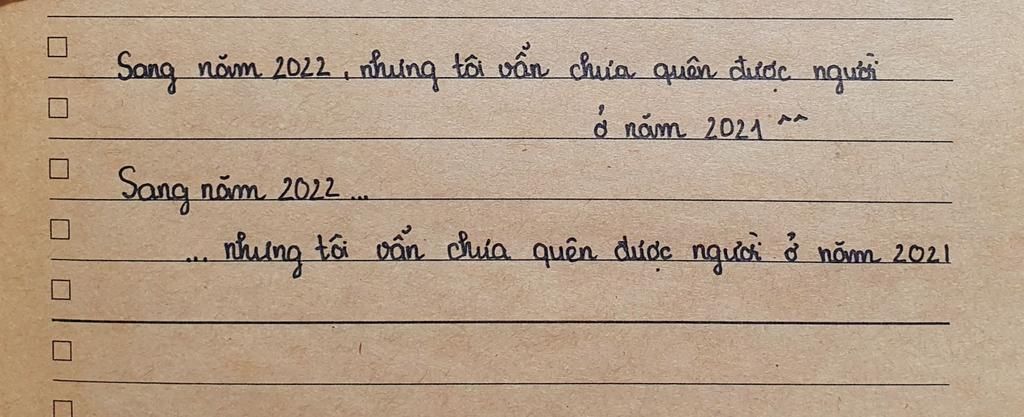 Sang năm 2022, nhưng tôi vẫn chưa quên được người
ở năm 2021 ^^
Sang năm 2022...
... nhưng tôi vẫn chưa quên được người ở năm 2021